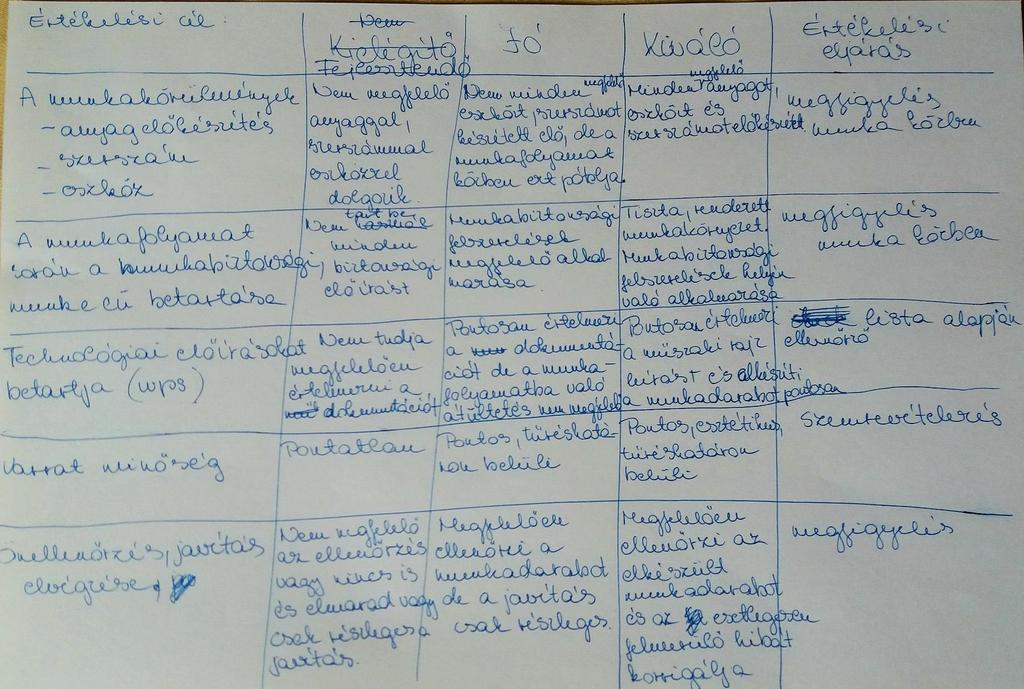 Értékelési cél:
Nem
Kielégítő
Fejlesztendő
Jó
Kiváló
Értékelési
eljárás
A munkakörülmények
- anyagelőkészítés
- szerszám
- eszköz
Nem megfelelő
anyaggal,
szerszámmal
eszközzel
dolgozik.
Nem minden megfelelő
eszközt, szerszámot
készített elő, de a
munkafolyamat
közben ezt pótolja.
Minden megfelelő anyagot,
eszközt és
szerszámot előkészített
megfigyelés
munka közben
A munkafolyamat
során a munkabiztonsági,
munka eü betartása
Nem tart be
minden
biztonsági
előírást
Munkabiztonsági
felszerelések
megfelelő alkal
mazása.
Tiszta, rendezett
munkakörnyezet.
Munkabiztonsági
felszerelések helyén
való alkalmazása
megfigyelés
munka közben
Technológiai előírásokat
betartja (wps)
Nem tudja
megfelelően
értelmezni a
dokumentációt
Pontosan értelmezi
a dokumentá-
ciót de a munka-
folyamatba való
átültetés nem megfelelő
Pontosan értelmezi
a műszaki rajz
leírást és elkészíti
a munkadarabot pontosan
lista alapján
ellenőrző
Varrat minőség
Pontatlan
Pontos, tűréshatá-
ron belüli
Pontos, esztétikus,
tűréshatáron
belüli
Szemrevételezés
Önellenőrzés, javítás
elvégzése,
Nem megfelelő
az ellenőrzés
vagy nincs is
és elmarad vagy
csak részleges a
javítás.
Megfelelően
ellenőrzi a
munkadarabot
de a javítás
csak részleges.
Megfelelően
ellenőrzi az
elkészült
munkadarabot
és az esetlegesen
felmerülő hibát
korrigálja
megfigyelés